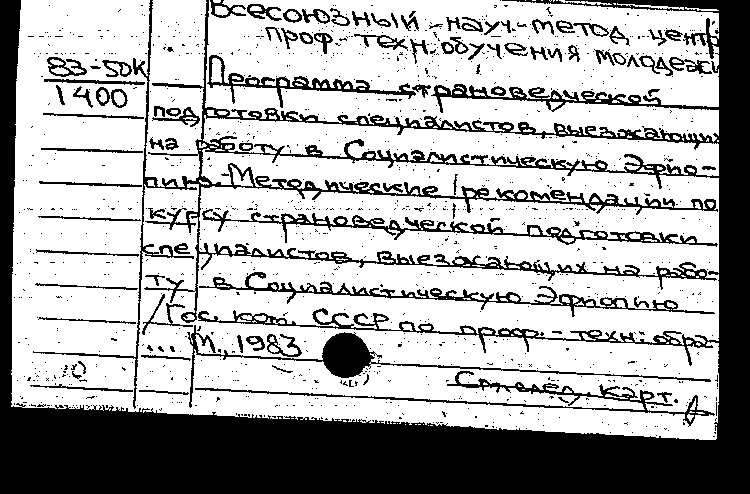 Всесоюзный науч.-метод. центр
проф.-техн. обучения молодежи
83-50К
1400
Программа страноведческой
подготовки специалистов, выезжающих
на работу в Социалистическую Эфио-
пию.-Методические рекомендации по
курсу страноведческой подготовки
специалистов, выезжающих на рабо-
ту в Социалистическую Эфиопию
/Гос. ком. СССР по проф.-техн. обра-
... М., 1983
См. след. карт.